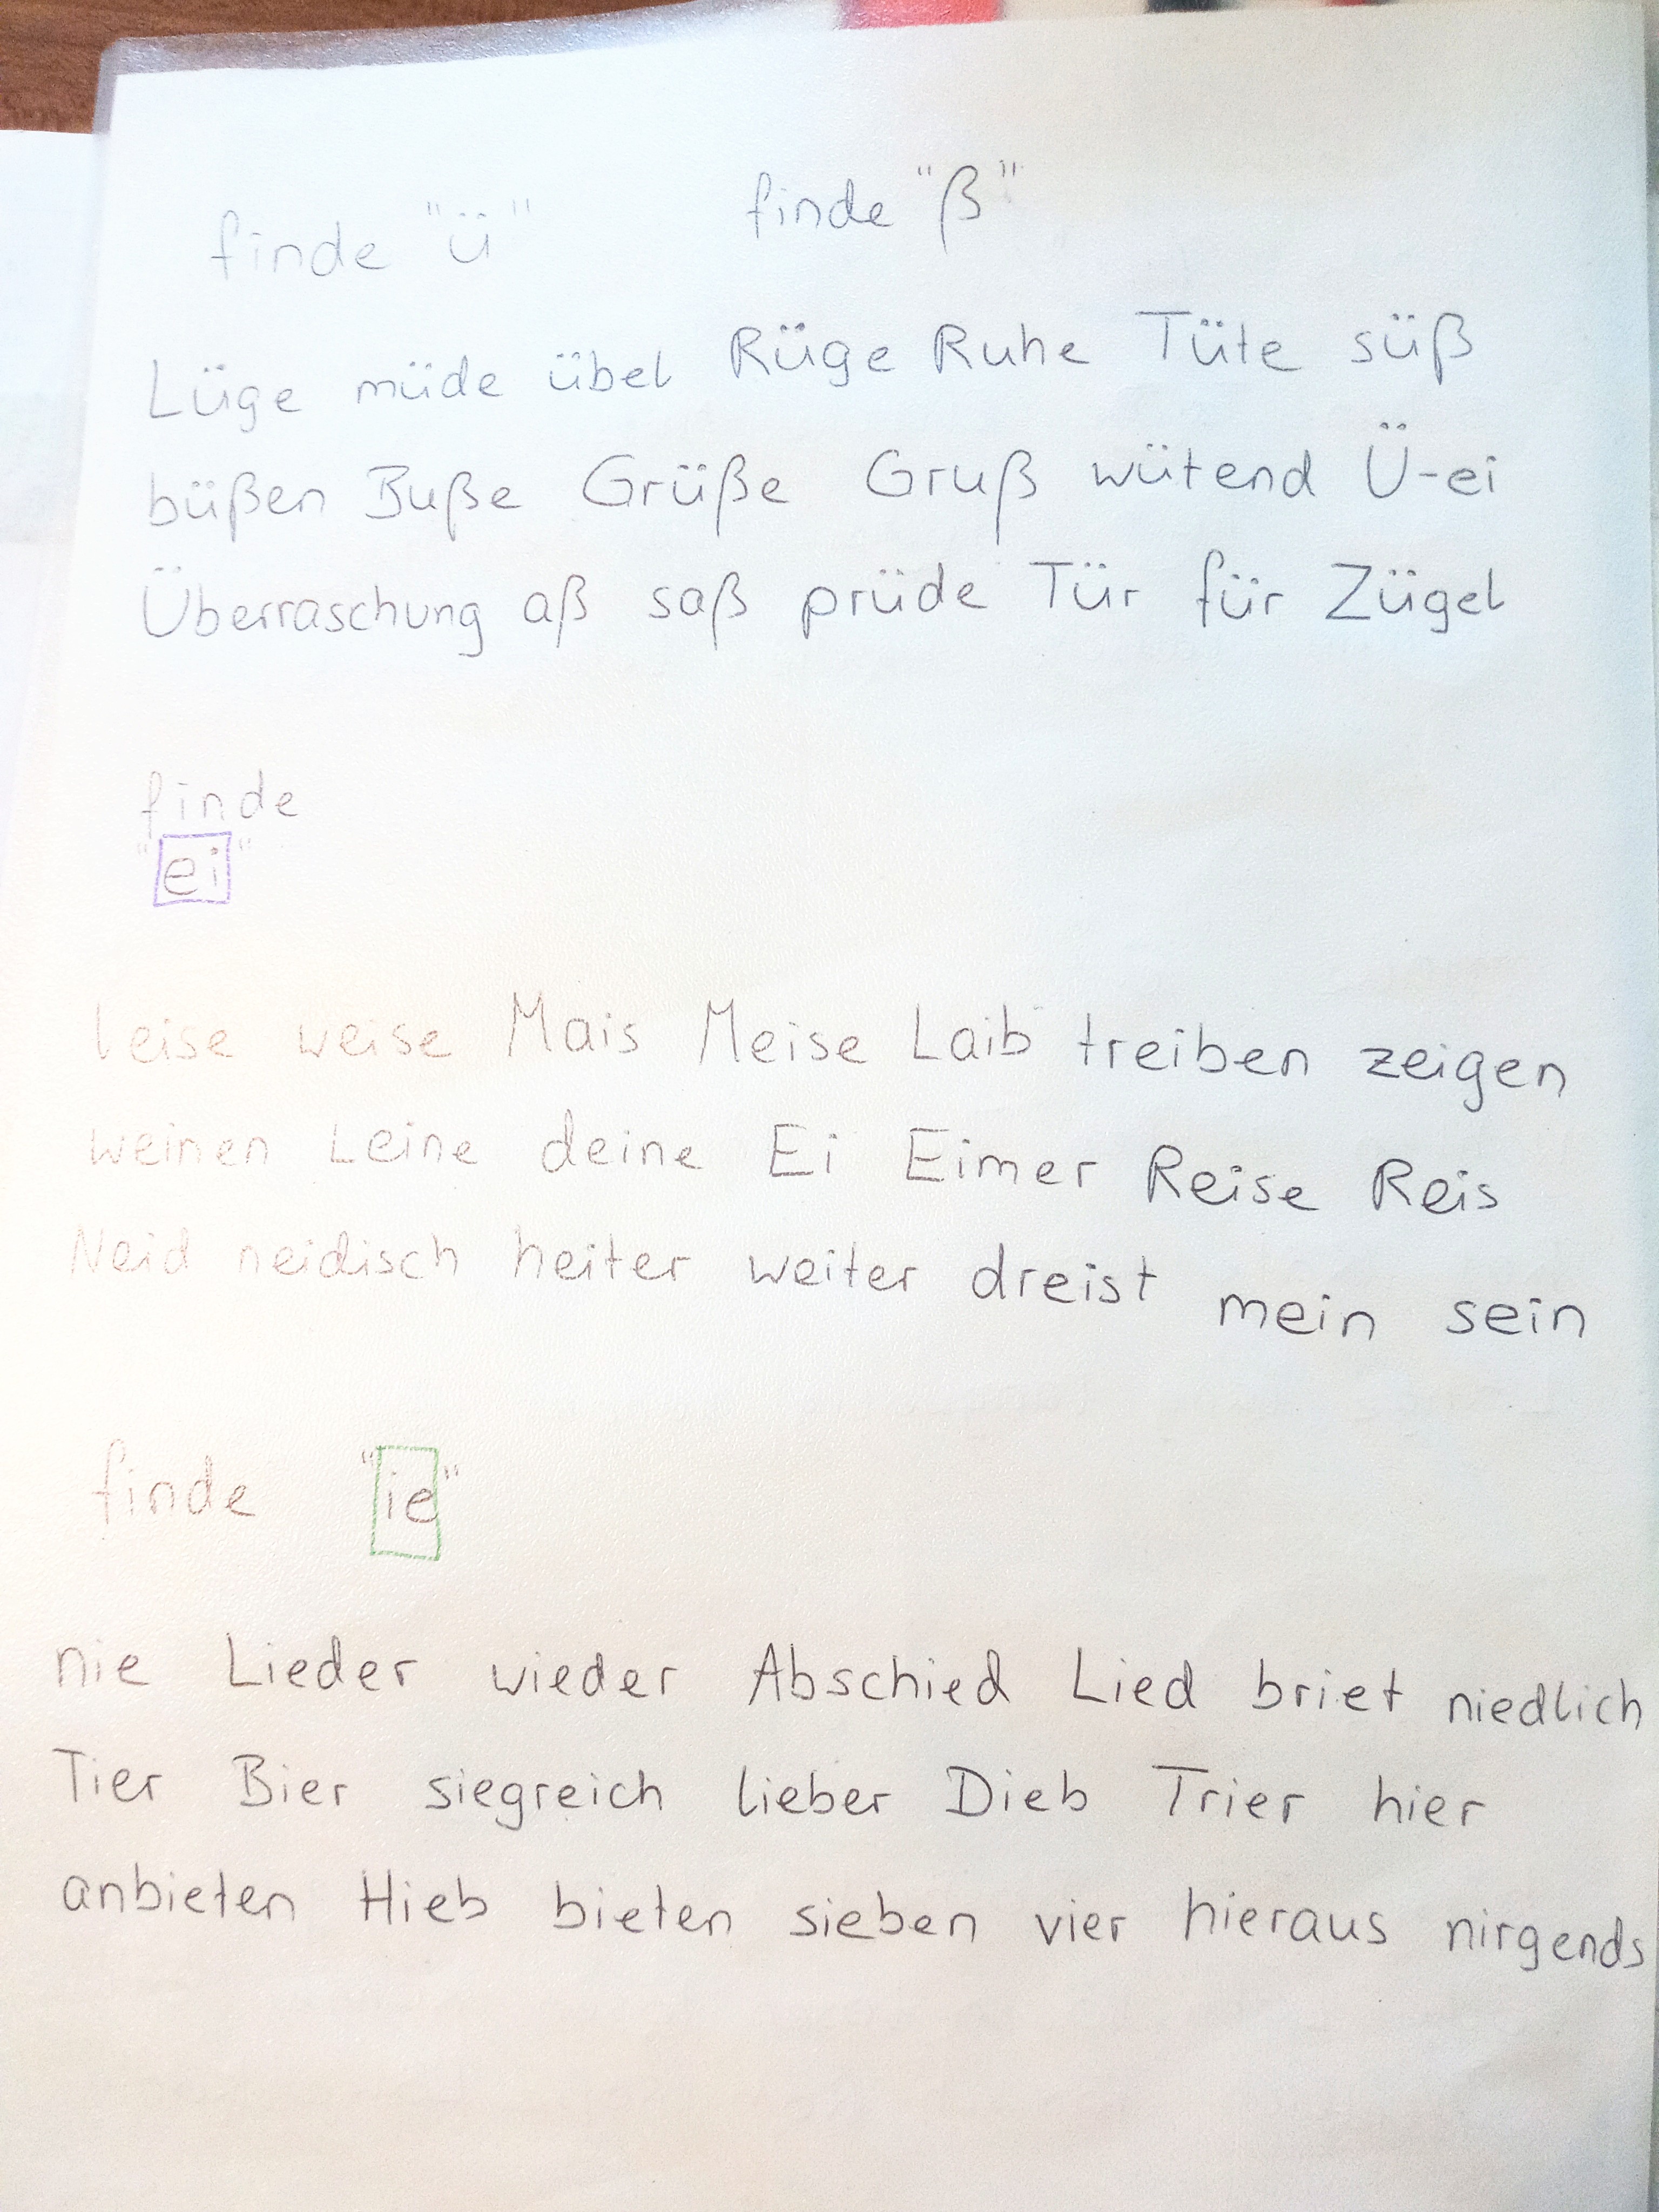 finde "ü" finde "ß"
Lüge müde übel Rüge Ruhe Tüte süß
büßen Buße Grüße Gruß wütend Ü-ei
Überraschung aß saß prüde Tür für Zügel
finde
"ei"
leise weise Mais Meise Laib treiben zeigen
weinen Leine deine Ei Eimer Reise Reis
Neid neidisch heiter weiter dreist mein sein
finde "ie"
nie Lieder wieder Abschied Lied briet niedlich
Tier Bier siegreich lieber Dieb Trier hier
anbieten Hieb bieten sieben vier hieraus nirgends